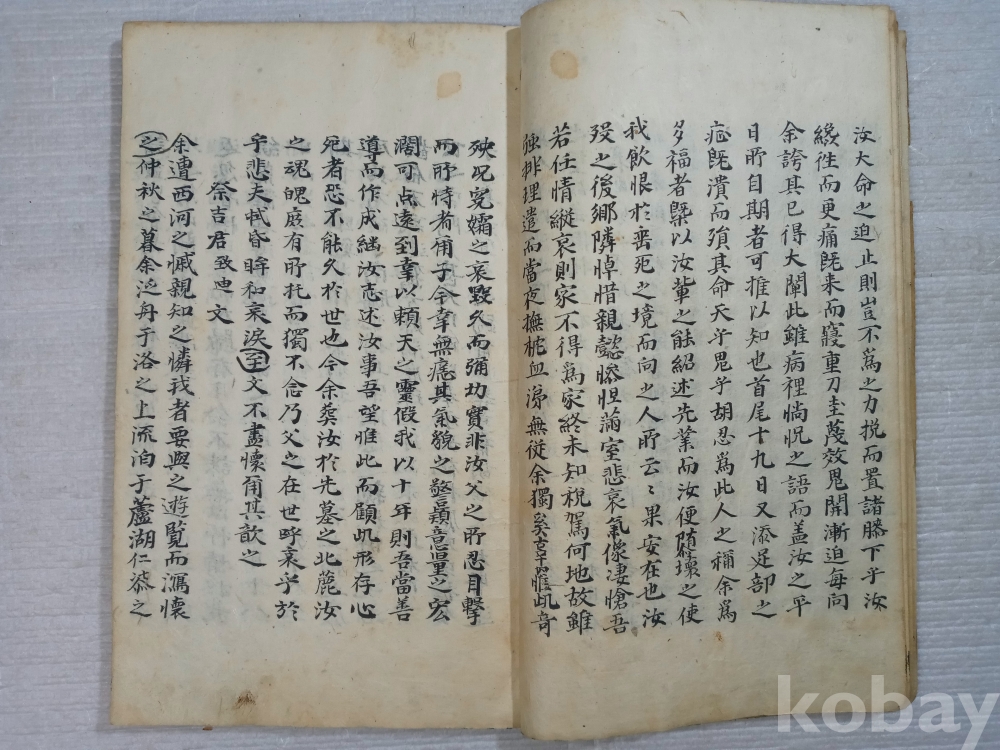 汝大命之迫止則豈不爲之力挽而置諸膝下乎汝
纔徃而更痛旣来而寢重刀圭蔑效鬼關漸迫每向
余誇其已得大闡此雖病裡惝怳之語而盖汝之平
日所自期者可推以知也首尾十九日又添足部之
症旣潰而殞其命天乎鬼乎胡忍爲此人之稱余爲
多福者槩以汝輩之能紹述先業而汝便隨壞之使
我飮恨於垂死之境而向之人所云云果安在也汝
歿之後鄉隣悼惜親懿慘怛滿室悲哀氣像凄愴吾
若任情縱哀則家不得爲家終未知稅駕何地故雖
强排理遣而當夜撫枕血涕無従余獨奚辜罹此奇
殃况寃孀之哀毀久而彌切實非汝父之所忍目擊
而所恃者甭子今幸無恙其氣貌之警穎意量之宏
濶可占遠到幸以賴天之靈假我以十年則吾當善
導而作成繼汝志述汝事吾望惟此而顧此形存心
死者恐不能久於世也今余葬汝於先墓之北麓汝
之魂魄庶有所托而獨不念乃父之在世呼哀乎於
乎悲夫拭昏眸和哀淚至文不盡懷甭其歆之
祭吉君致 文
余遭西河之慽親知之憐我者要與之遊覧而瀉懷
之仲秋之暮余泛舟于洛之上流泊于蘆湖仁恭之
kobay